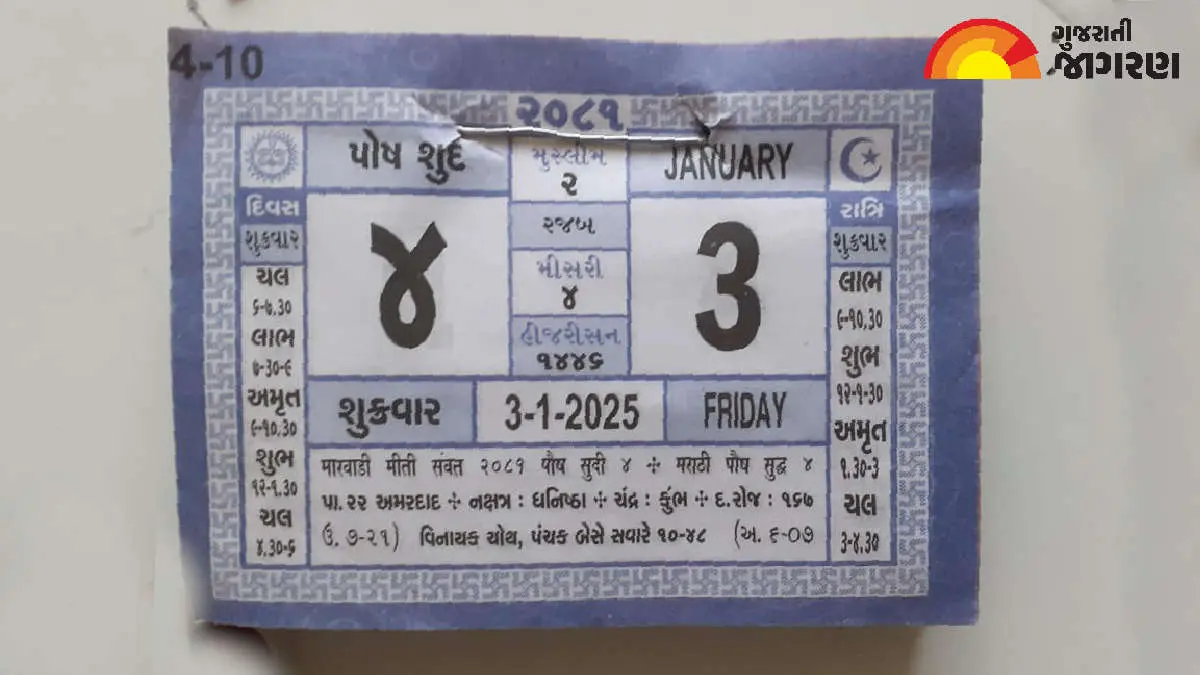 ગુજરાતી
જાગરણ
4-10
૨૦૮૧
પોષ શુદ
મુસ્લીમ
૨
રજબ
મીસરી
૪
હીજરીસન
૧૪૪૬
JANUARY
૪
3
દિવસ
શુક્રવાર
ચલ
૬-૭.30
લાભ
૭-30-૯
અમૃત
૯-૧૦.30
શુભ
૧૨-૧.30
ચલ
૪.30-૬
રાત્રિ
શુક્રવાર
લાભ
૯-૧૦.30
શુભ
૧૨-૧-30
અમૃત
૧.30-3
ચલ
3-૪.30
શુક્રવાર
3-1-2025
FRIDAY
मारवाडी मीती संवत २०८१ पौष सुदी ४ ✢ मराठी पौष सुद्ध ४
પા.૨૨ અમરદાદ ✢ નક્ષત્ર : ધનિષ્ઠા ✢ ચંદ્ર : કુંભ ✢ દ.રોજ : ૧૬૭
(ઉ. ૭-૨૧) વિનાયક ચોથ, પંચક બેસે સવારે ૧૦-૪૮ (અ. ૬-૦૭)